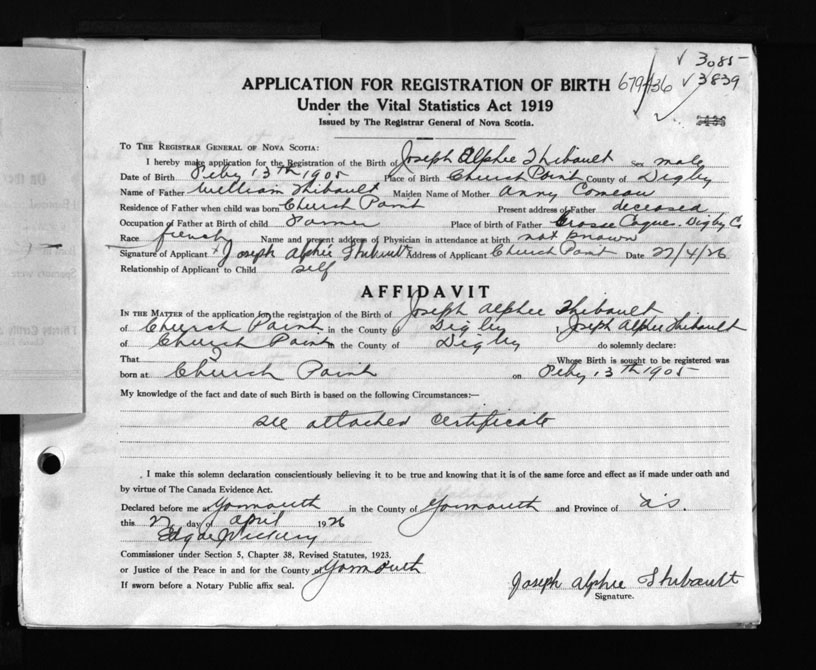 ✓ 3085-
679436 ✓ 3839
APPLICATION FOR REGISTRATION OF BIRTH
Under the Vital Statistics Act 1919
Issued by The Registrar General of Nova Scotia.
TO THE REGISTRAR GENERAL OF NOVA SCOTIA:
I hereby make application for the Registration of the Birth of Joseph Alphee Thibault Sex male
Date of Birth Feby 13th 1905 Place of Birth Church Point County of Digby
Name of Father William Thibault Maiden Name of Mother Anny Comeau
Residence of Father when child was born Church Point Present address of Father deceased
Occupation of Father at Birth of child Farmer Place of birth of Father Grosse Coques Digby Co
Race french Name and present address of Physician in attendance at birth not known
Signature of Applicant x Joseph Alphée Thibault Address of Applicant Church Point Date 27/4/26
Relationship of Applicant to Child self
AFFIDAVIT
IN THE MATTER of the application for the registration of the Birth of Joseph Alphee Thibault
of Church Point in the County of Digby I Joseph Alphee Thibault
of Church Point in the County of Digby do solemnly declare:
That Whose Birth is sought to be registered was
born at Church Point on Feby 13th 1905
My knowledge of the fact and date of such Birth is based on the following Circumstances:—
see attached certificate
I make this solemn declaration conscientiously believing it to be true and knowing that it is of the same force and effect as if made under oath and
by virtue of The Canada Evidence Act.
Declared before me at Yarmouth in the County of Yarmouth and Province of N.S.
this 27 day of April 1926
Commissioner under Section 5, Chapter 38, Revised Statutes, 1923.
or Justice of the Peace in and for the County of Yarmouth
If sworn before a Notary Public affix seal.
Joseph Alphee Thibault
Signature.